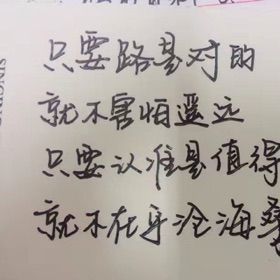 只要路是对的
就不害怕遥远
只要认准是值得
就不在乎沧海桑